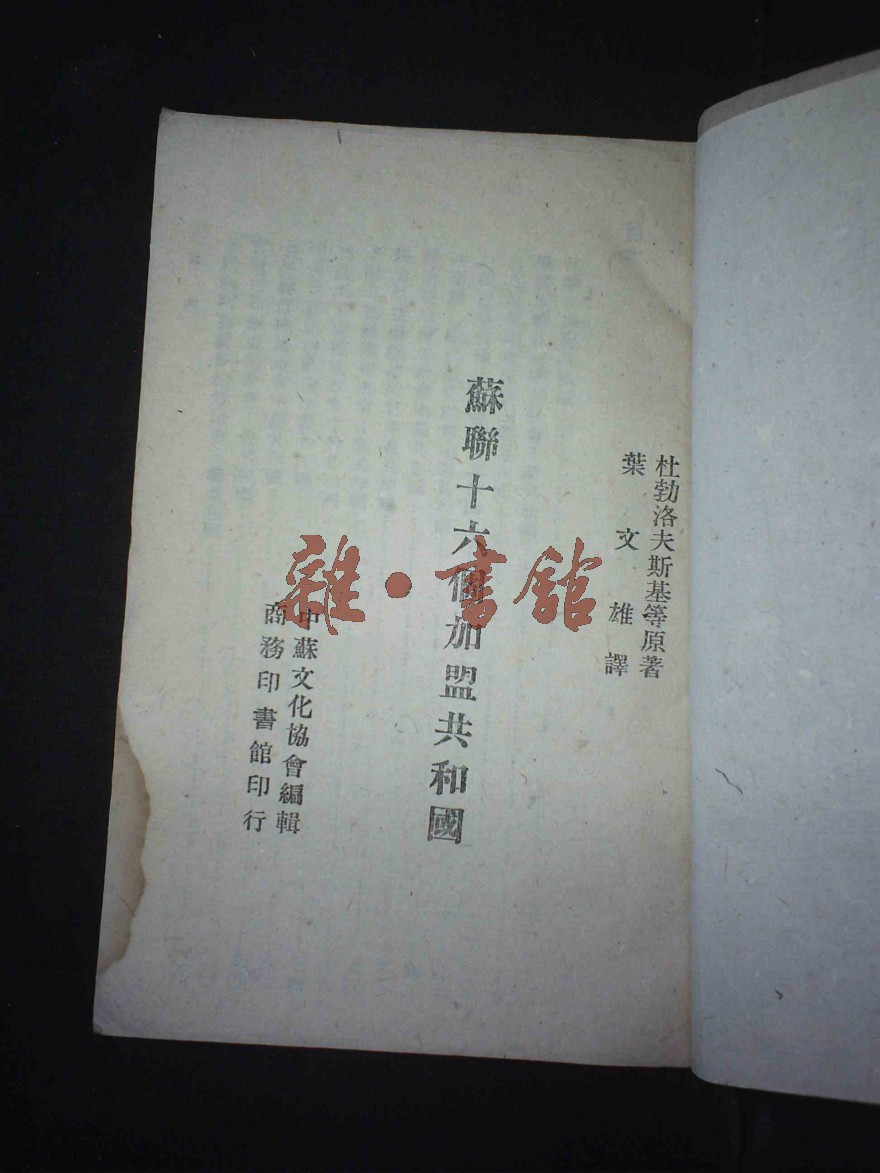 杜勃洛夫斯基等原著
葉文雄譯
蘇聯十六個加盟共和國
中蘇文化協會編輯
商務印書館印行
雜·書館